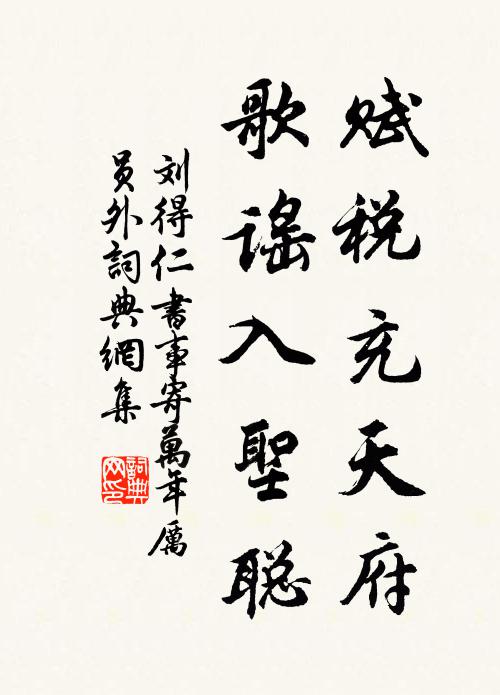 赋税充天府
歌谣入聖聪
刘得仁書事寄萬年厲
员外詞典網集
詞典网印